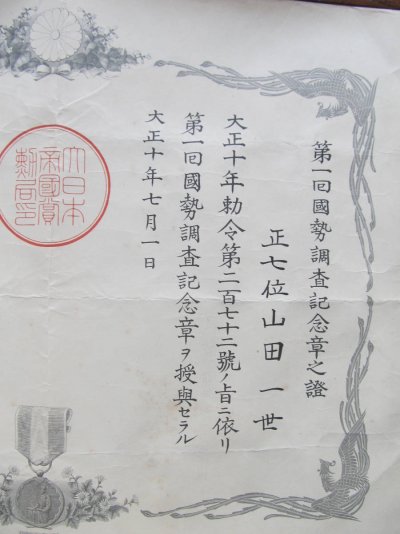 第一回國勢調査記念章之證
正七位山田一世
大正十年勅令第二百七十二號ノ旨ニ依リ
第一回國勢調査記念章ヲ授與セラル
大正十年七月一日
大日本
帝國賞
勲局印